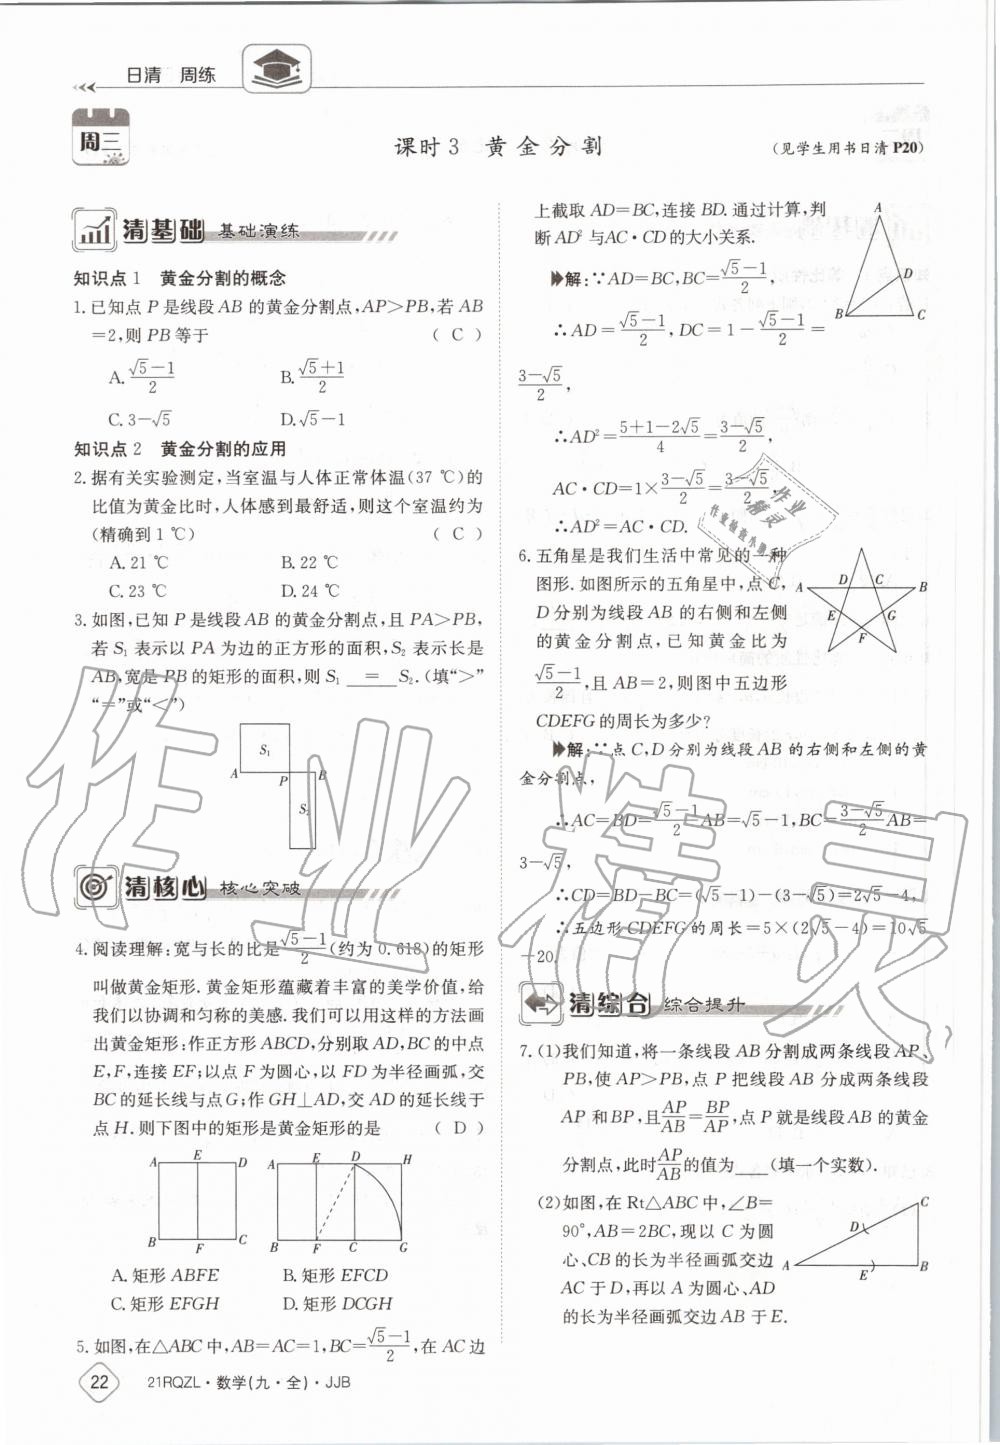 日清 周练
周三
课时3 黄金分割
(见学生用书日清P20)
清基础 基础演练
知识点1 黄金分割的概念
1. 已知点 P 是线段 AB 的黄金分割点,AP>PB,若 AB
=2,则 PB 等于 ( C )
A. (√5-1)/2 B. (√5+1)/2
C. 3-√5 D. √5-1
知识点2 黄金分割的应用
2. 据有关实验测定,当室温与人体正常体温(37 ℃)的
比值为黄金比时,人体感到最舒适,则这个室温约为
(精确到 1 ℃) ( C )
A. 21 ℃ B. 22 ℃
C. 23 ℃ D. 24 ℃
3. 如图,已知 P 是线段 AB 的黄金分割点,且 PA>PB,
若 S₁ 表示以 PA 为边的正方形的面积,S₂ 表示长是
AB,宽是 PB 的矩形的面积,则 S₁ = S₂. (填“>”
“=”或“<”)
S₁
A P B
S₂
清核心 核心突破
4. 阅读理解:宽与长的比是 (√5-1)/2 (约为 0.618)的矩形
叫做黄金矩形. 黄金矩形蕴藏着丰富的美学价值,给
我们以协调和匀称的美感. 我们可以用这样的方法画
出黄金矩形:作正方形 ABCD,分别取 AD,BC 的中点
E,F,连接 EF;以点 F 为圆心,以 FD 为半径画弧,交
BC 的延长线与点 G;作 GH⊥AD,交 AD 的延长线于
点 H. 则下图中的矩形是黄金矩形的是 ( D )
A E D A E D H
B F C B F C G
A. 矩形 ABFE B. 矩形 EFCD
C. 矩形 EFGH D. 矩形 DCGH
5. 如图,在△ABC 中,AB=AC=1,BC=(√5-1)/2,在 AC 边
22 21RQZL·数学(九·全)·JJB
上截取 AD=BC,连接 BD. 通过计算,判
断 AD² 与AC·CD的大小关系.
A
D
B C
解:∵AD=BC,BC=(√5-1)/2,
∴AD=(√5-1)/2,DC=1-(√5-1)/2=
(3-√5)/2,
∴AD²=(5+1-2√5)/4=(3-√5)/2,
AC·CD=1×(3-√5)/2=(3-√5)/2.
∴AD²=AC·CD.
6. 五角星是我们生活中常见的一种
图形. 如图所示的五角星中,点 C,
D 分别为线段 AB 的右侧和左侧
的黄金分割点,已知黄金比为
(√5-1)/2,且 AB=2,则图中五边形
CDEFG 的周长为多少?
A D C B
E G
F
解:∵点 C,D 分别为线段 AB 的右侧和左侧的黄
金分割点,
∴AC=BD=(√5-1)/2AB=√5-1,BC=(3-√5)/2AB=
3-√5,
∴CD=BD-BC=(√5-1)-(3-√5)=2√5-4,
∴五边形 CDEFG 的周长=5×(2√5-4)=10√5
-20.
清综合 综合提升
7. (1)我们知道,将一条线段 AB 分割成两条线段 AP、
PB,使 AP>PB,点 P 把线段 AB 分成两条线段
AP 和 BP,且 AP/AB=BP/AP,点 P 就是线段 AB 的黄金
分割点,此时 AP/AB 的值为____(填一个实数).
(2)如图,在 Rt△ABC 中,∠B=
90°,AB=2BC,现以 C 为圆
心、CB 的长为半径画弧交边
AC 于 D,再以 A 为圆心、AD
的长为半径画弧交边 AB 于 E.
C
D
A E B
作业精灵
作业
精灵